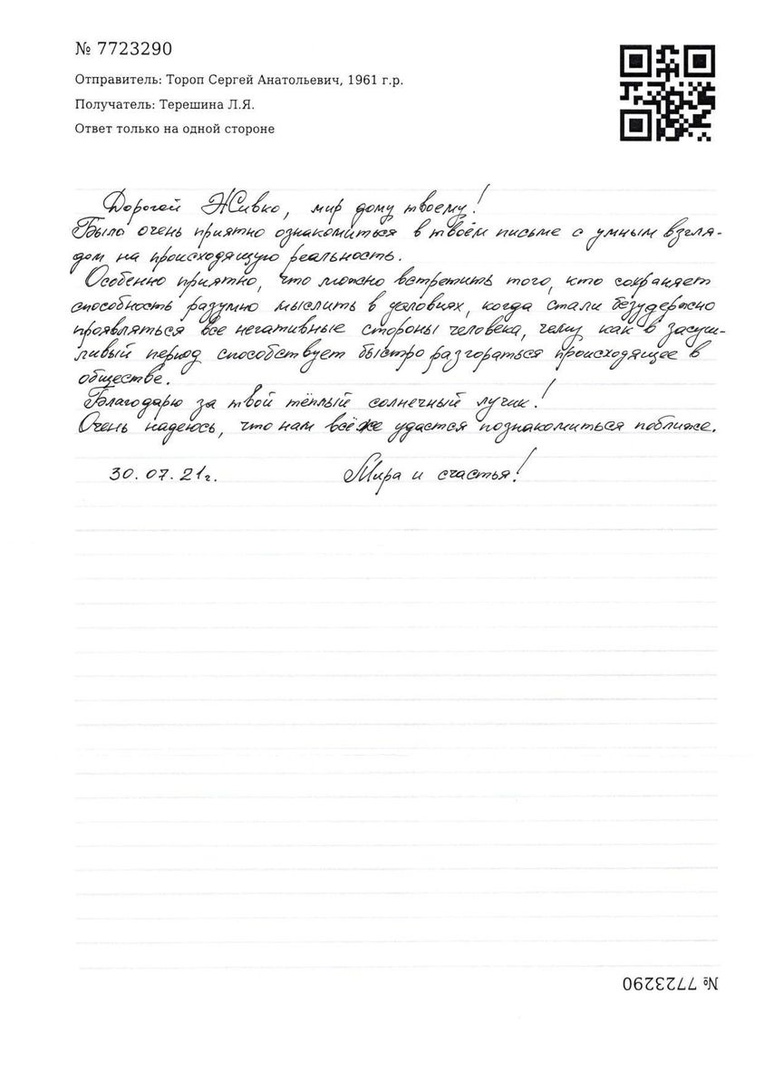 № 7723290
Отправитель: Тороп Сергей Анатольевич, 1961 г.р.
Получатель: Терешина Л.Я.
Ответ только на одной стороне
Дорогой Живко, мир дому твоему!
Было очень приятно ознакомиться в твоём письме с умным взгля-
дом на происходящую реальность.
Особенно приятно, что можно встретить того, кто сохраняет
способность разумно мыслить в условиях, когда стали безудержно
проявляться все негативные стороны человека, чему как в засуш-
ливый период способствует быстро разгораться происходящее в
обществе.
Благодарю за твой тёплый солнечный лучик!
Очень надеюсь, что нам всё же удастся познакомиться поближе.
30.07.21г. Мира и счастья!
№ 7723290